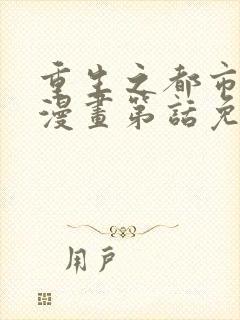 重生之都市
漫畫第話免
用戶